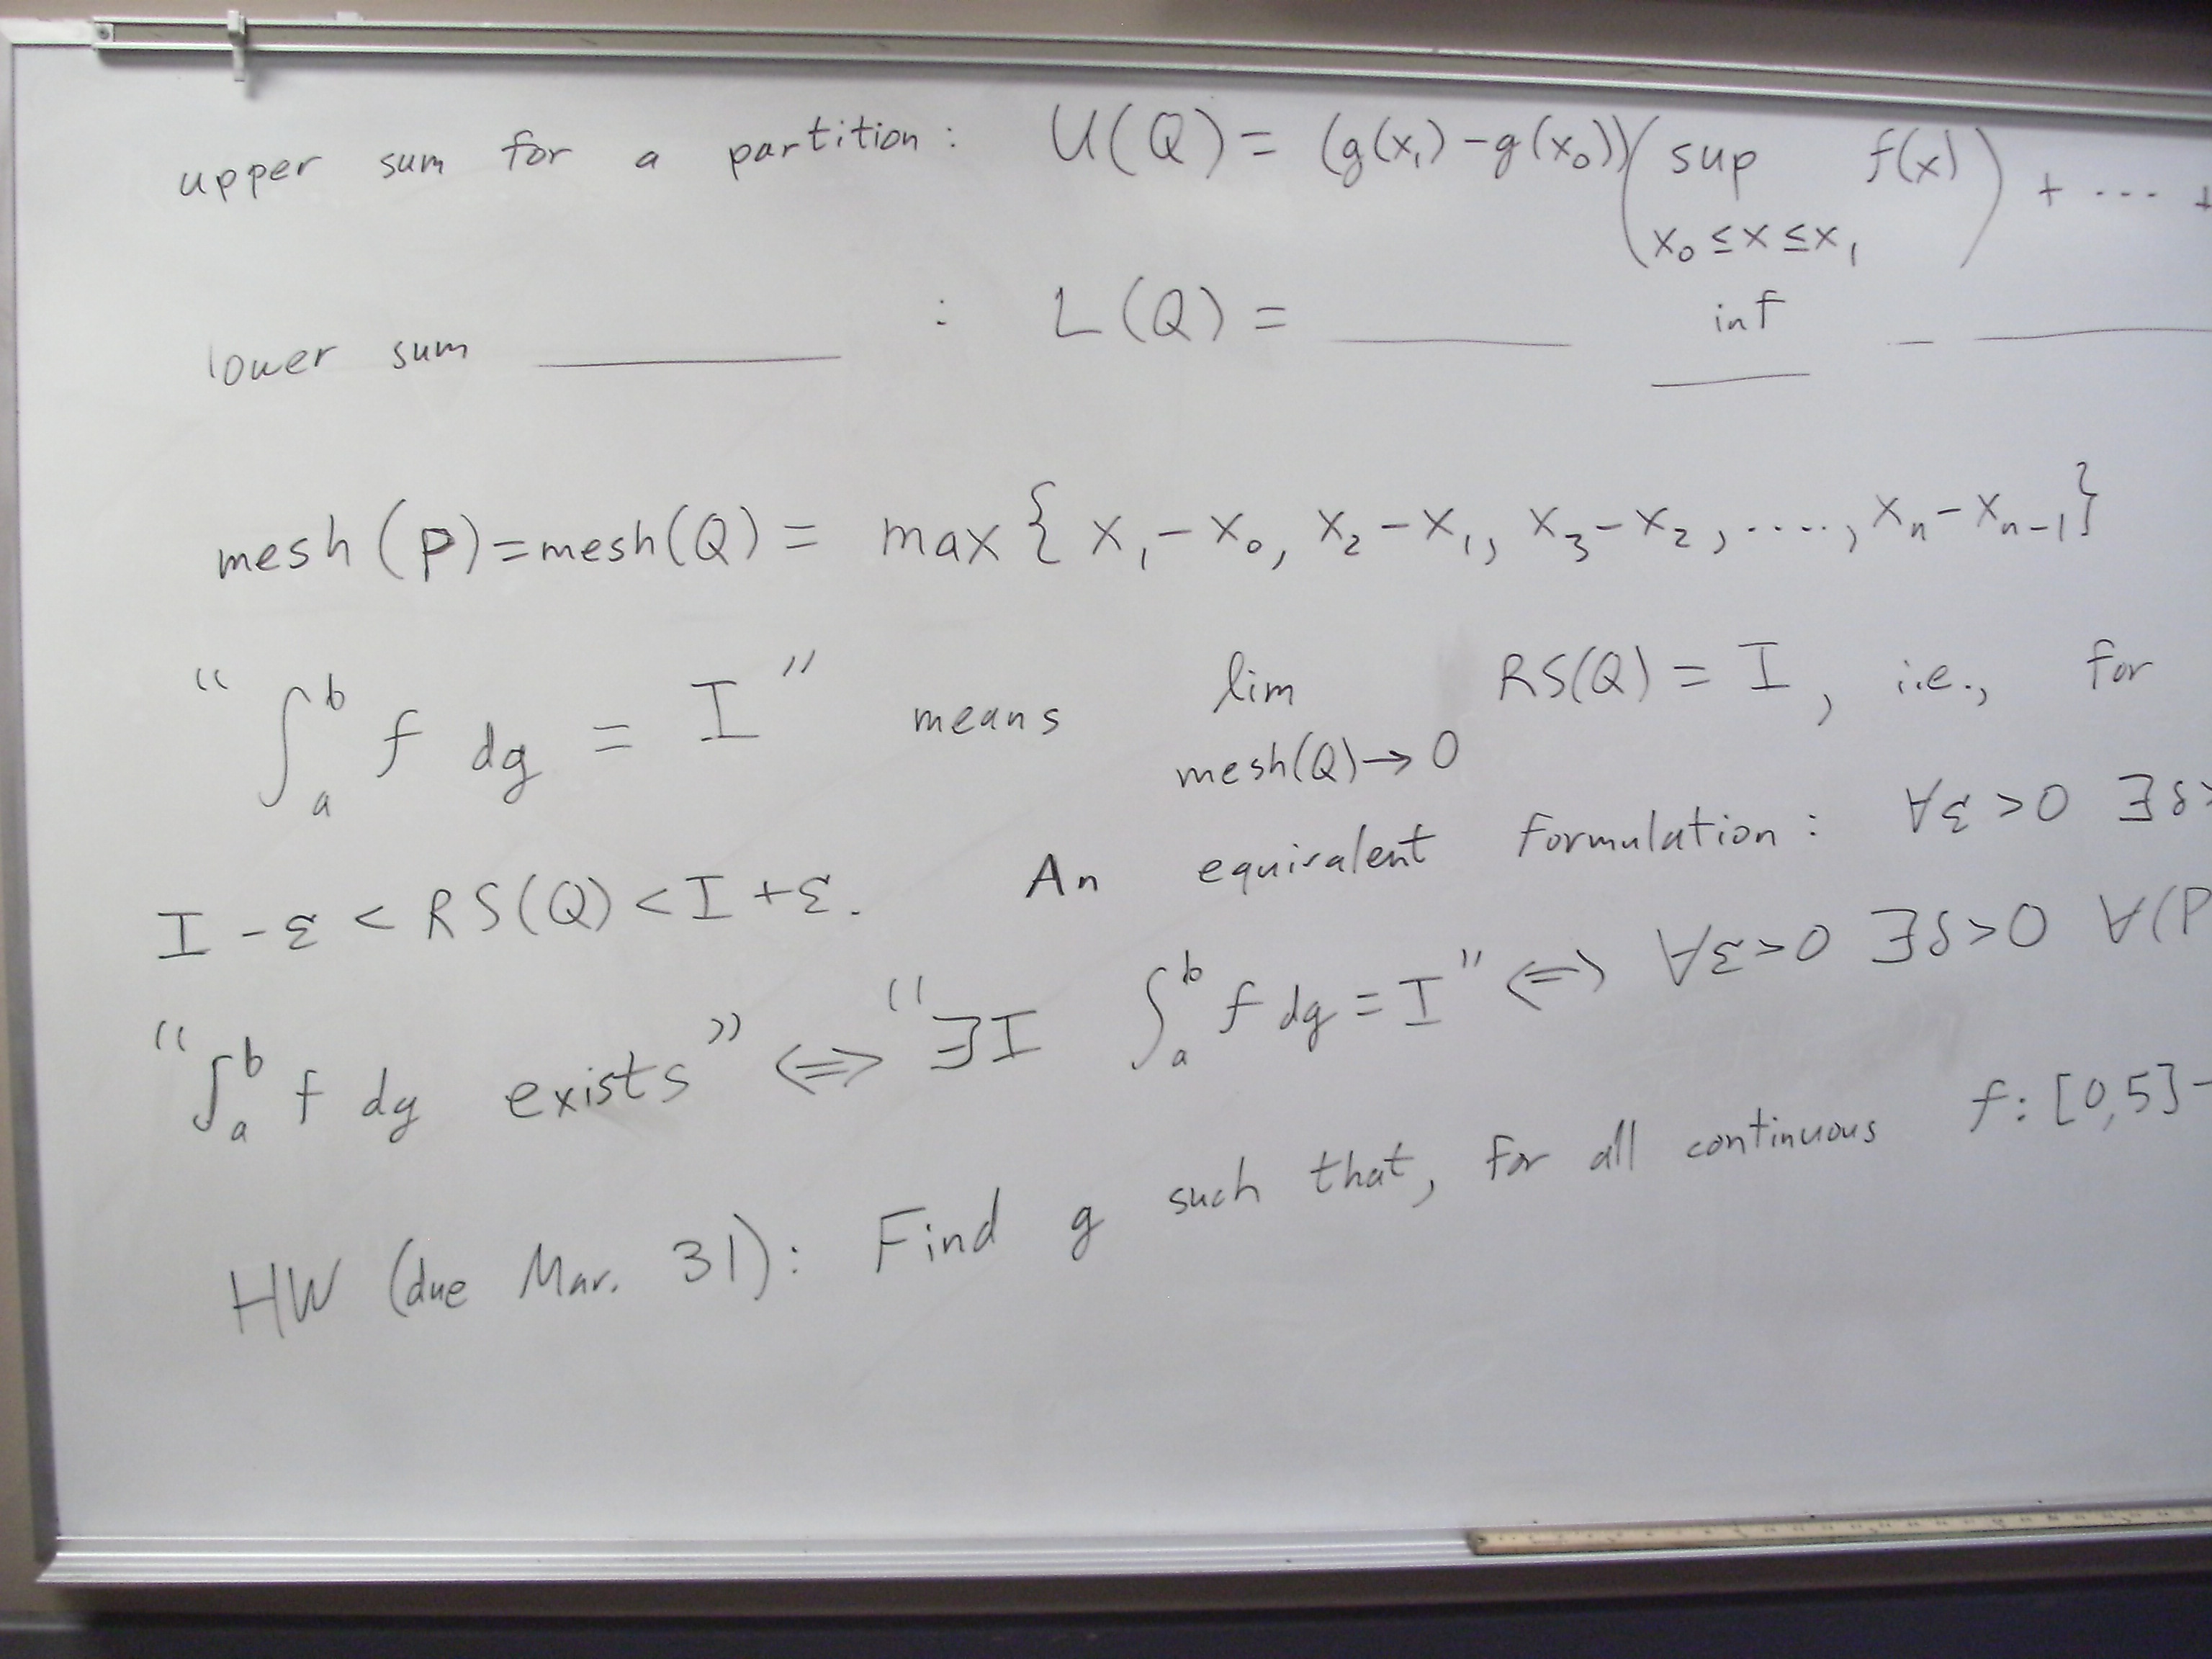 upper sum for a partition : U(Q) = (g(x₁) - g(x₀)) ( sup f(x) ) + ... +
x₀ ≤ x ≤ x₁
lower sum ______ : L(Q) = ______ inf __ ______
mesh (P) = mesh(Q) = max { x₁ - x₀, x₂ - x₁, x₃ - x₂, ...., xₙ - xₙ₋₁ }
“ ∫ₐᵇ f dg = I ” means lim RS(Q) = I, i.e., for
mesh(Q) → 0
I - ε < RS(Q) < I + ε. An equivalent formulation : ∀ε > 0 ∃δ >
“ ∫ₐᵇ f dg exists ” ⟺ “ ∃I ∫ₐᵇ f dg = I ” ⟺ ∀ε > 0 ∃δ > 0 ∀(P
HW (due Mar. 31): Find g such that, for all continuous f: [0,5] -